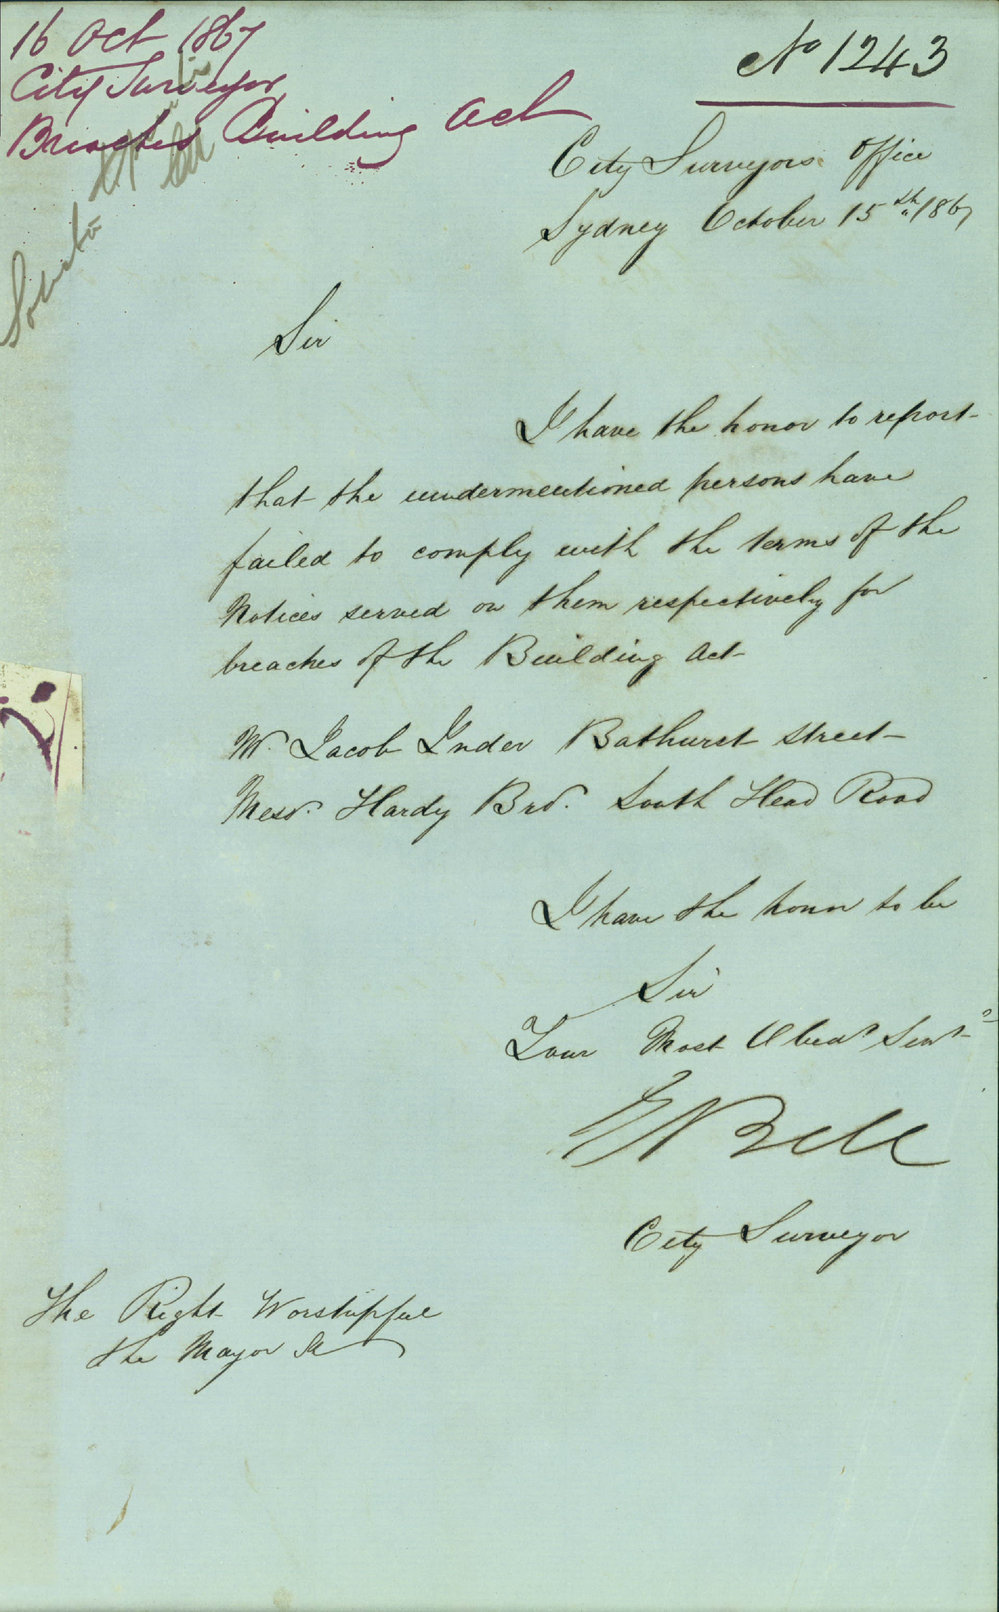 16 Oct 1867
City Surveyor
Breaches Building Act
No 1243
City Surveyors Office
Sydney October 15th 1867
Sir
I have the honor to report
that the undermentioned persons have
failed to comply with the terms of the
Notices served on them respectively for
breaches of the Building Act
Mr. Jacob Inder Bathurst Street
Messrs. Hardy Bros. South Head Road
I have the honor to be
Sir
Your Most Obedt Servt
E Bell
City Surveyor
The Right Worshipful
the Mayor &c